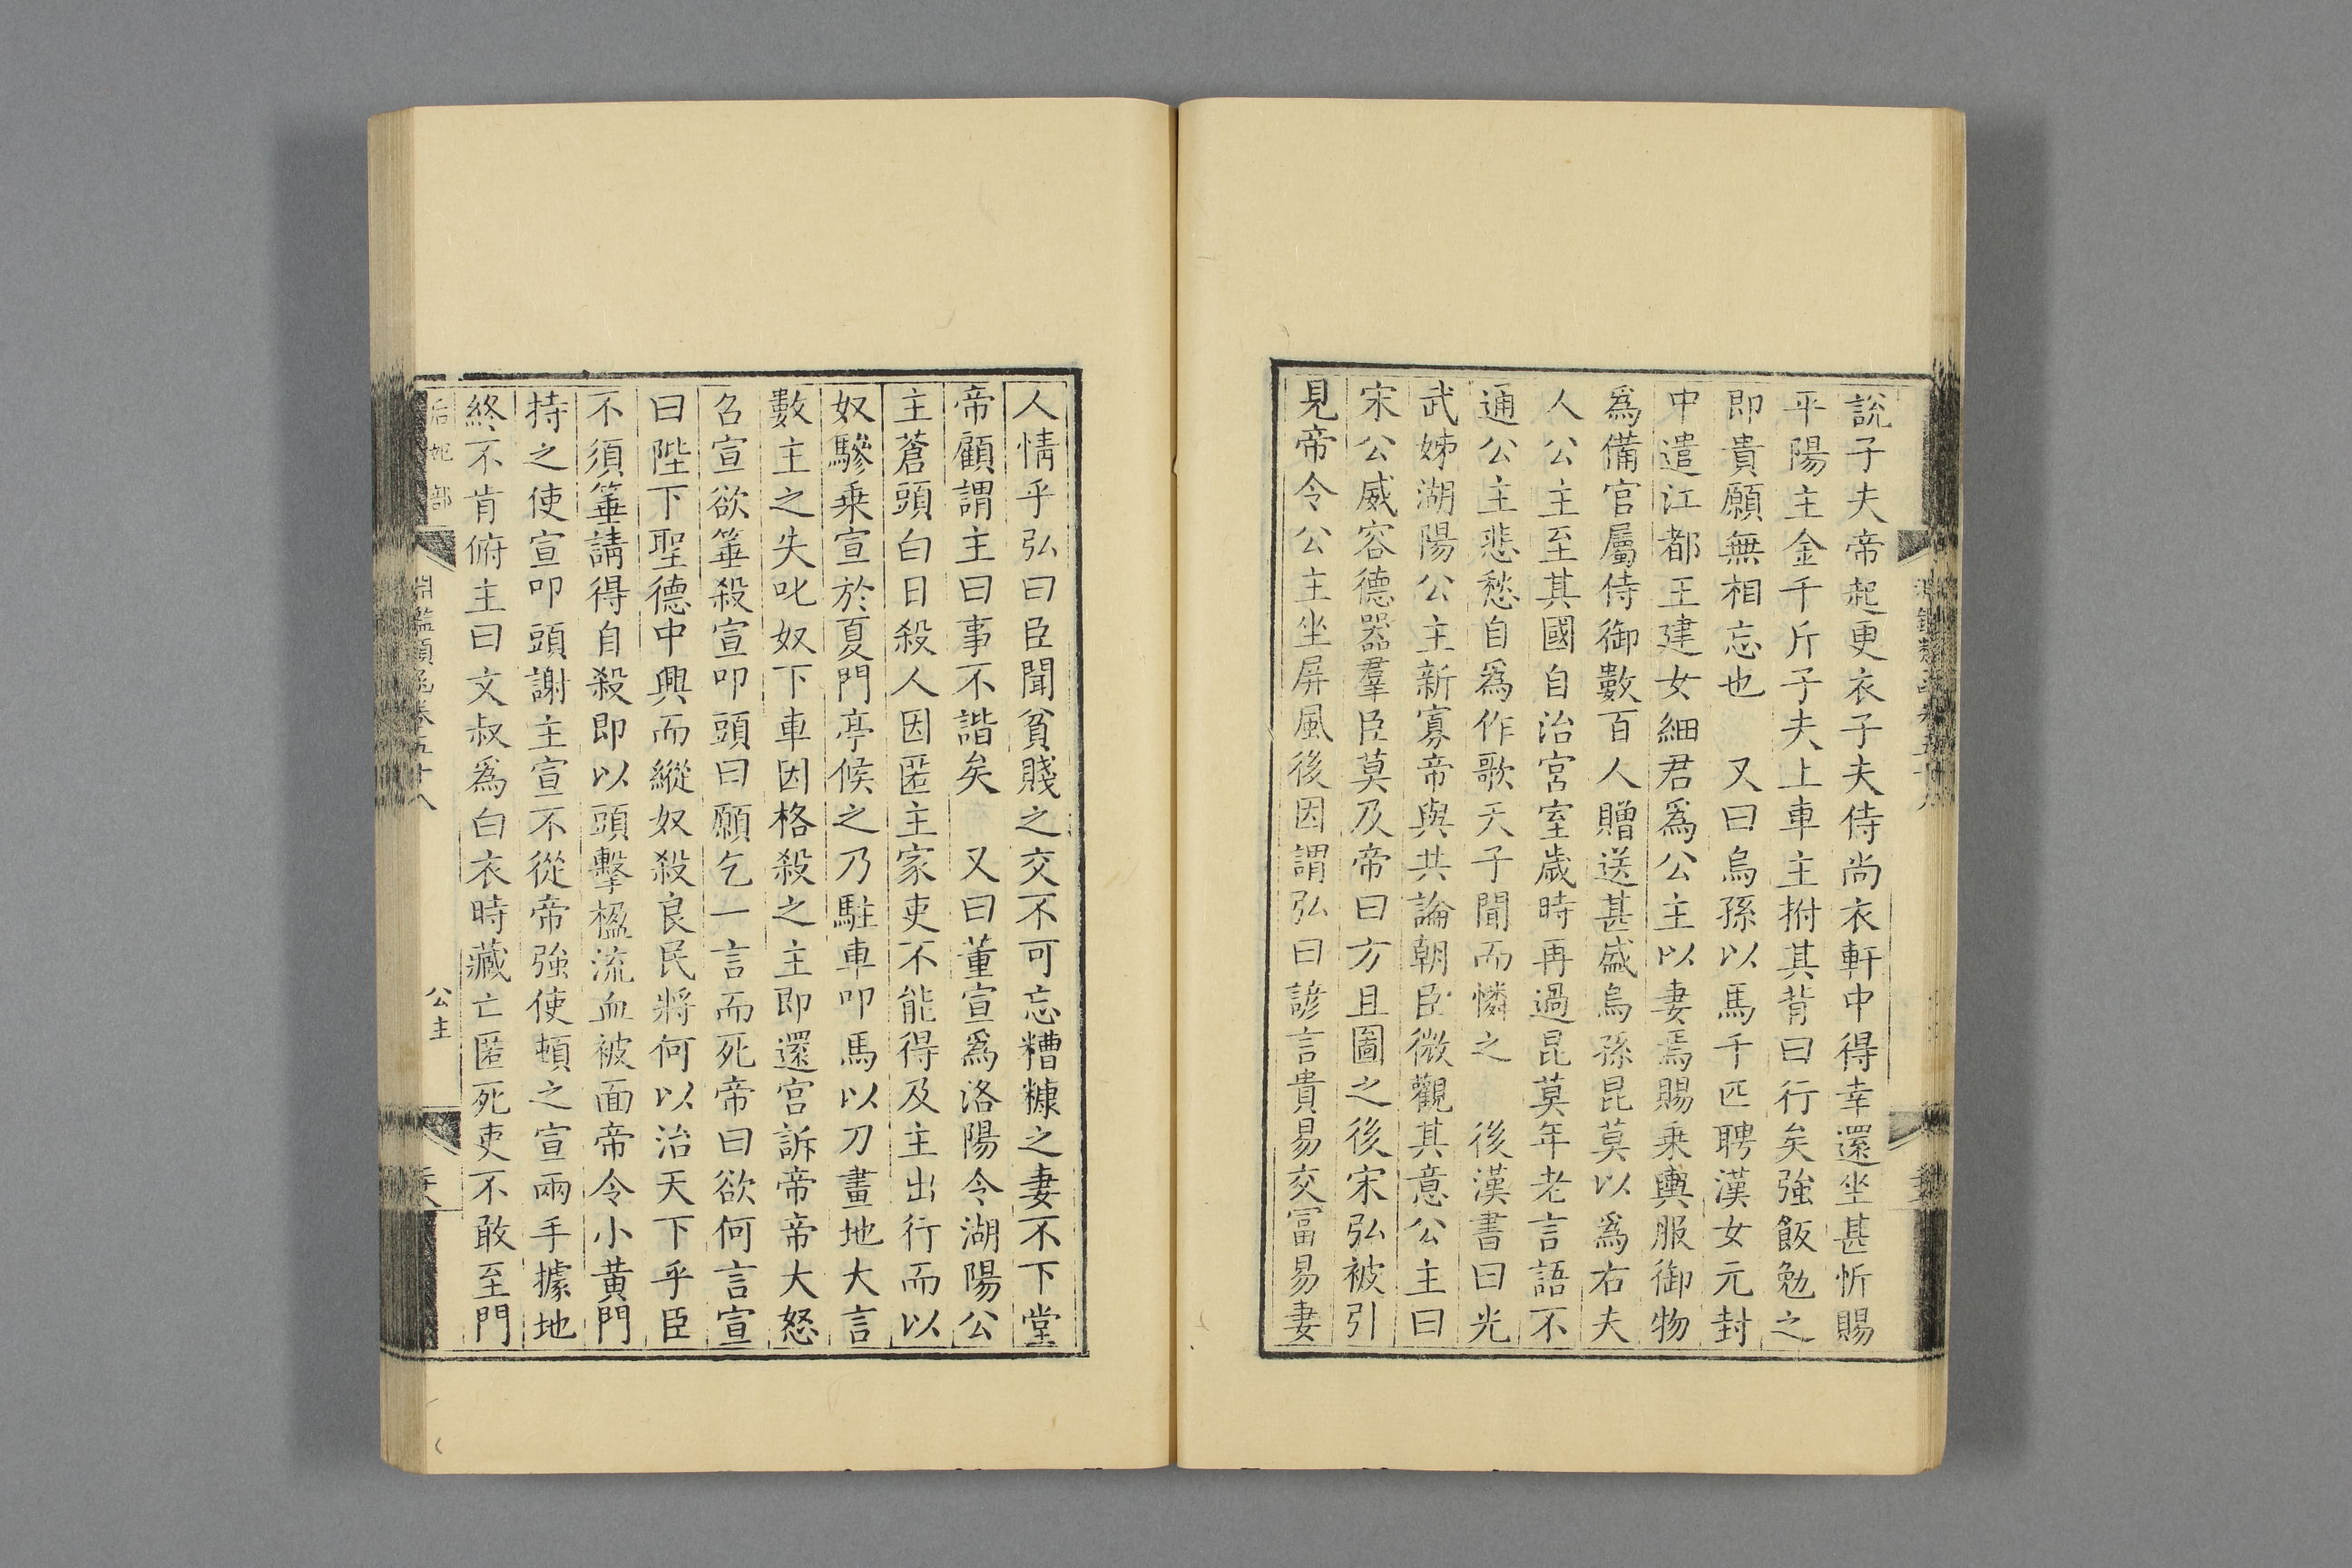 說子夫帝起更衣子夫侍尚衣軒中得幸還坐甚忻賜
平陽主金千斤子夫上車主拊其背曰行矣強飯勉之
即貴願無相忘也　又曰烏孫以馬千匹聘漢女元封
中遣江都王建女細君爲公主以妻焉賜乗輿服御物
爲備官屬侍御數百人贈送甚盛烏孫昆莫以爲右夫
人公主至其國自治宮室歲時再過昆莫年老言語不
通公主悲愁自爲作歌天子聞而憐之　後漢書曰光
武姊湖陽公主新寡帝與共論朝臣微觀其意公主曰
宋公威容德器羣臣莫及帝曰方且圖之後宋弘被引
見帝令公主坐屏風後因謂弘曰諺言貴易交冨易妻
人情乎弘曰臣聞貧賤之交不可忘糟糠之妻不下堂
帝顧謂主曰事不諧矣　又曰董宣爲洛陽令湖陽公
主蒼頭白日殺人因匿主家吏不能得及主出行而以
奴驂乗宣於夏門亭候之乃駐車叩馬以刀畫地大言
數主之失叱奴下車因格殺之主即還宮訴帝帝大怒
召宣欲箠殺宣叩頭曰願乞一言而死帝曰欲何言宣
曰陛下聖德中興而縱奴殺良民將何以治天下乎臣
不須箠請得自殺即以頭擊楹流血被面帝令小黃門
持之使宣叩頭謝主宣不從帝強使頓之宣兩手據地
終不肯俯主曰文叔爲白衣時藏亡匿死吏不敢至門
后妃部
淵鑑類函卷五十八
公主